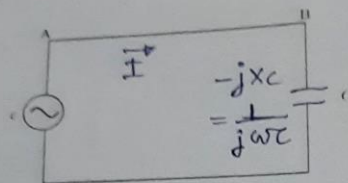 A
B
I
-jXc
= 1/jωC